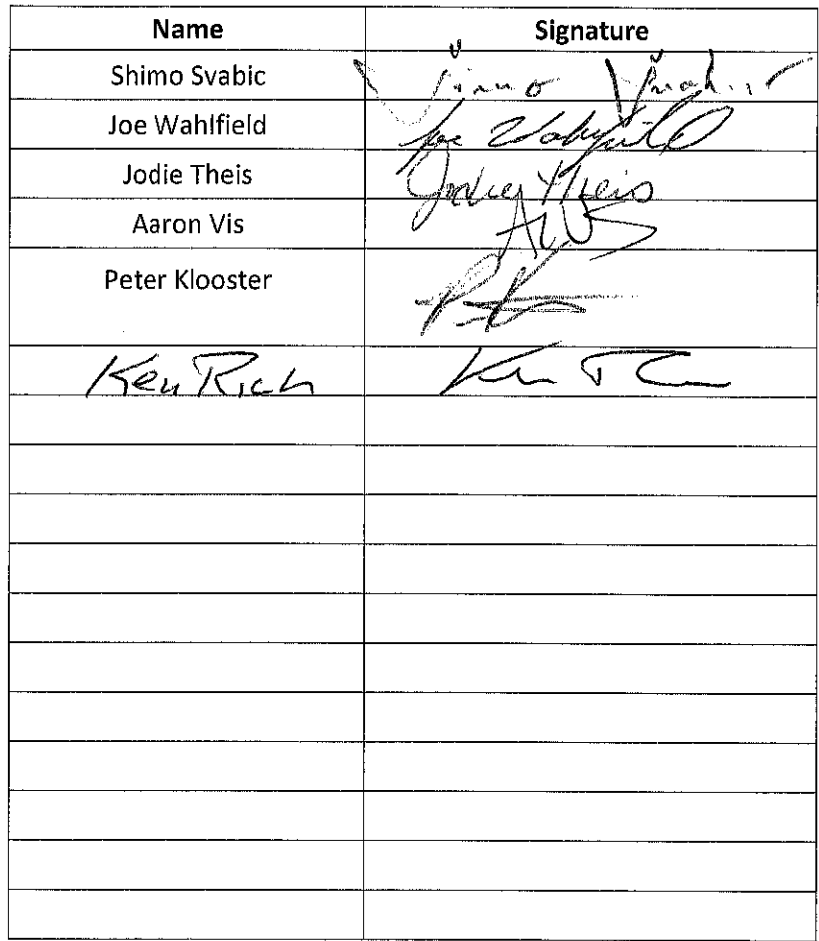 Name Signature
Shimo Svabic Šimo
Joe Wahlfield Joe Wahlfield
Jodie Theis Jodie Theis
Aaron Vis
Peter Klooster
Ken Rich Ken